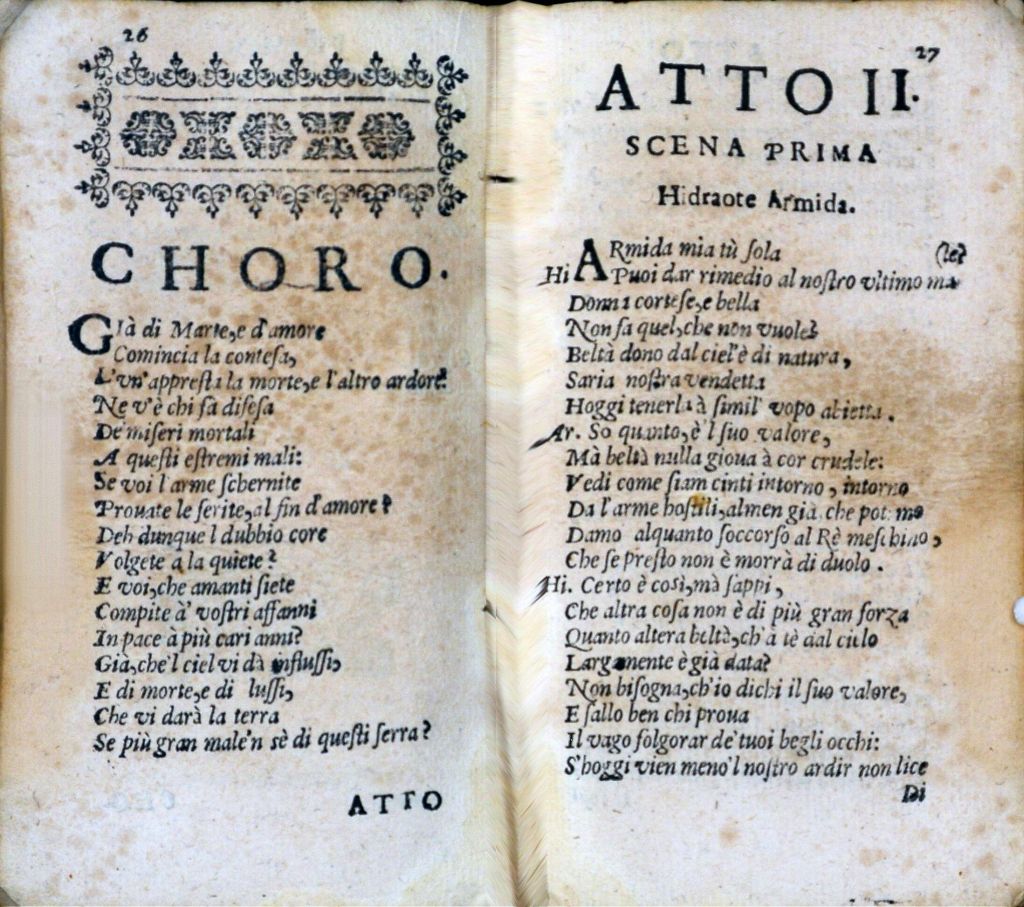 26
CHORO.
Già di Marte, e d'amore
Comincia la contesa,
L'vn'appresta la morte, e l'altro ardore?
Ne v'è chi fa difesa
De' miseri mortali
A questi estremi mali:
Se voi l'arme schernite
Prouate le ferite, al fin d'amore?
Deh dunque l dubbio core
Volgete a la quiete?
E voi, che amanti siete
Compite à' vostri affanni
In pace à più cari anni?
Già, che'l ciel vi dà influssi,
E di morte, e di lussi,
Che vi darà la terra
Se più gran male'n sè di questi serra?
ATTO
27
ATTO II.
SCENA PRIMA
Hidraote Armida.
ARmida mia tù sola
(le?
Hi Puoi dar rimedio al nostro vltimo ma
Donna cortese, e bella
Non sa quel, che non vuole?
Beltà dono dal ciel'è di natura,
Saria nostra vendetta
Hoggi tenerla à simil' vopo abietta.
Ar. So quanto, è'l suo valore,
Mà beltà nulla gioua à cor crudele:
Vedi come siam cinti intorno, intorno
Da l'arme hostili, almen già che pot mo
Damo alquanto soccorso al Rè meschino,
Che se presto non è morrà di duolo.
Hi. Certo è così, mà sappi,
Che altra cosa non è di più gran forza
Quanto altera beltà, ch'a tè dal cielo
Largamente è già data?
Non bisogna, ch'io dichi il suo valore,
E sallo ben chi proua
Il vago folgorar de' tuoi begli occhi:
S'hoggi vien meno'l nostro ardir non lice
Di